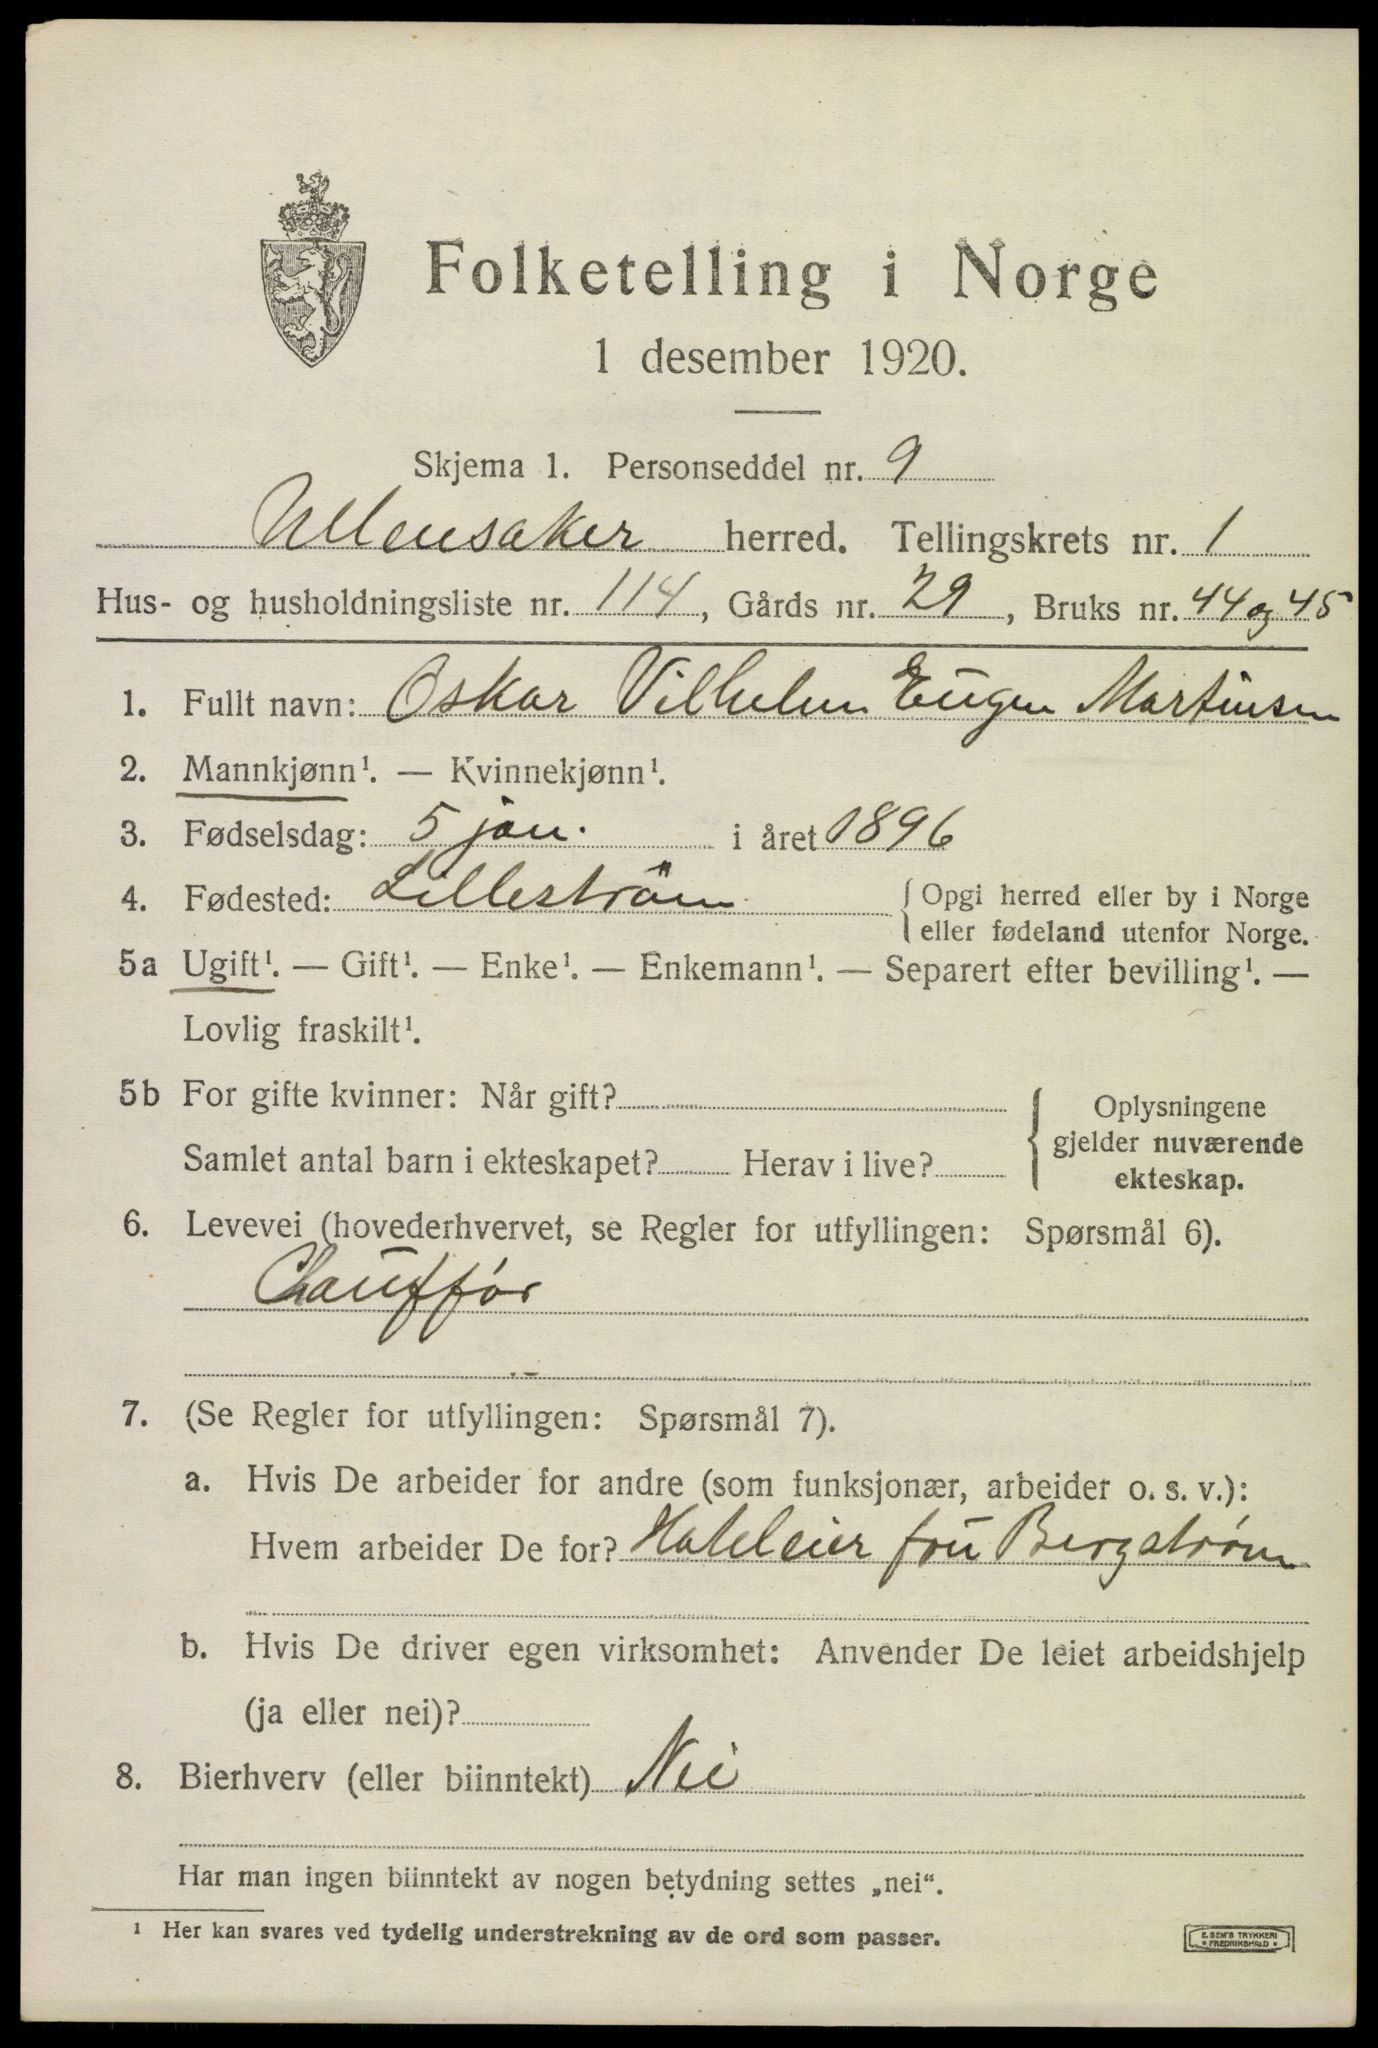 Folketelling i Norge
1 desember 1920.
Skjema 1. Personseddel nr. 9
Ullensaker herred. Tellingskrets nr. 1
Hus- og husholdningsliste nr. 114, Gårds nr. 29, Bruks nr. 44 og 45
1. Fullt navn: Oskar Vilhelm Eugen Martinsen
2. Mannkjønn¹. — Kvinnekjønn¹.
3. Fødselsdag: 5 jan. i året 1896
4. Fødested: Lilleström { Opgi herred eller by i Norge
eller fødeland utenfor Norge.
5a Ugift¹. — Gift¹. — Enke¹. — Enkemann¹. — Separert efter bevilling¹. —
Lovlig fraskilt¹.
5b For gifte kvinner: Når gift?
Samlet antal barn i ekteskapet? Herav i live?
Oplysningene
gjelder nuværende
ekteskap.
6. Levevei (hovederhvervet, se Regler for utfyllingen: Spørsmål 6).
Chauffør
7. (Se Regler for utfyllingen: Spørsmål 7).
a. Hvis De arbeider for andre (som funksjonær, arbeider o. s. v.):
Hvem arbeider De for? Hoteleier fru Bergstrøm
b. Hvis De driver egen virksomhet: Anvender De leiet arbeidshjelp
(ja eller nei)?
8. Bierhverv (eller biinntekt) Nei
Har man ingen biinntekt av nogen betydning settes „nei“.
¹ Her kan svares ved tydelig understrekning av de ord som passer.
E. SEM'S TRYKKERI
FREDRIKSHALD